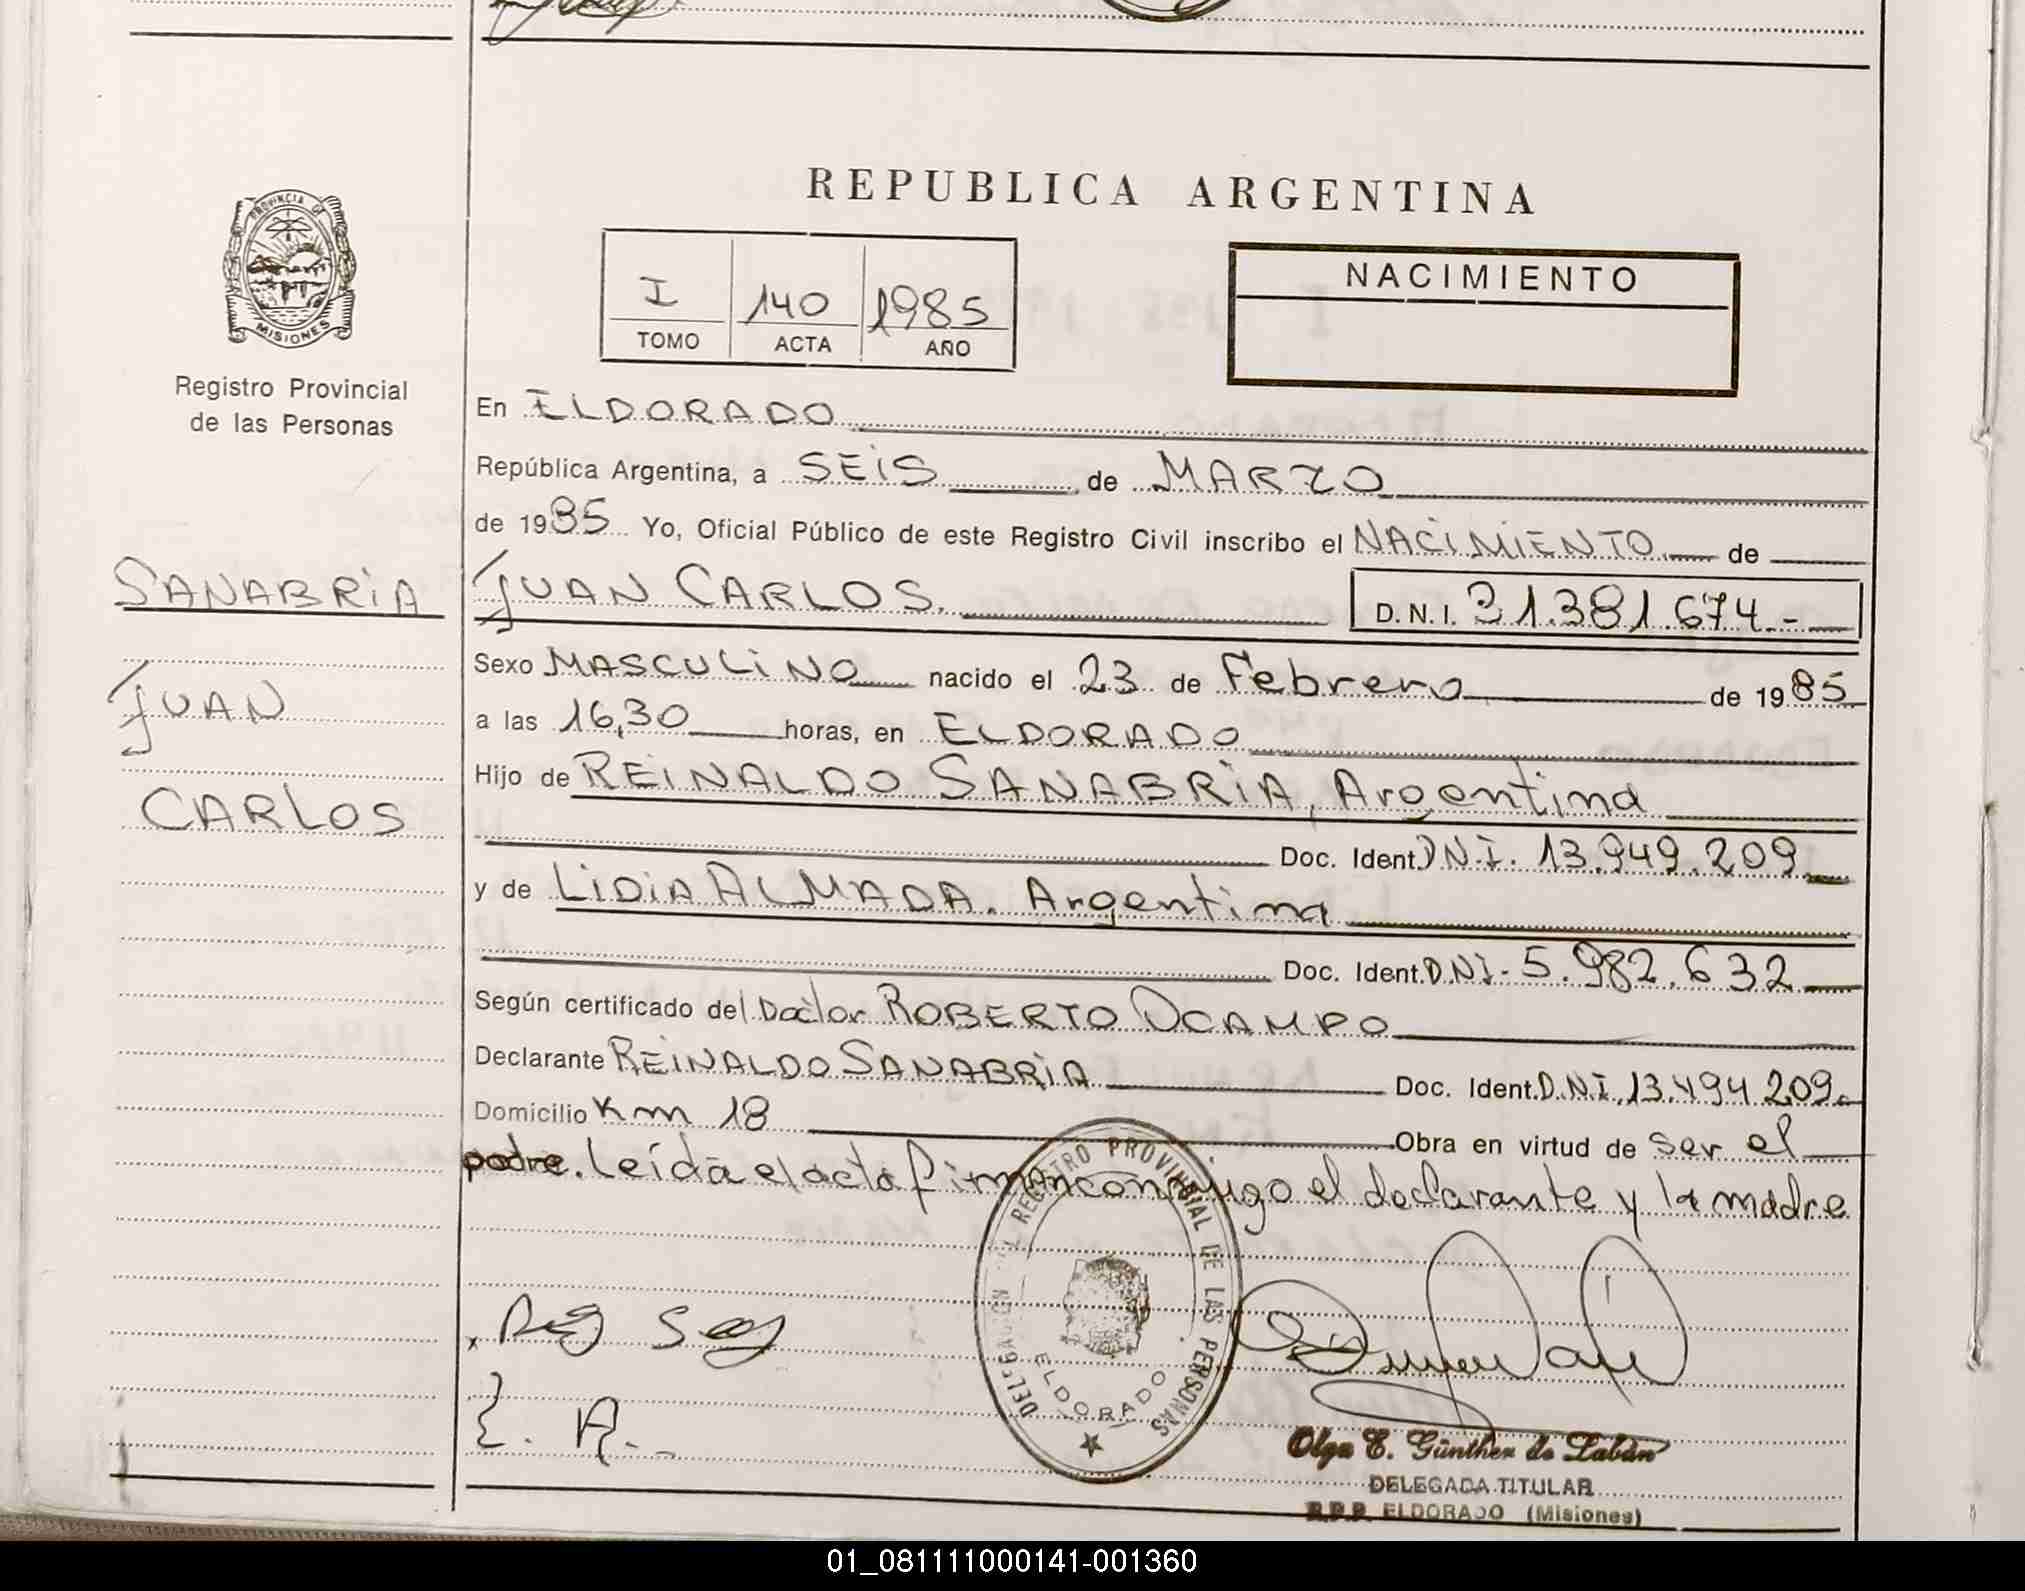 REPUBLICA ARGENTINA
PROVINCIA DE
MISIONES
Registro Provincial
de las Personas
I 140 1985
TOMO ACTA AÑO
NACIMIENTO
En ELDORADO
República Argentina, a SEIS de MARZO
de 1985 Yo, Oficial Público de este Registro Civil inscribo el NACIMIENTO de
SANABRIA
JUAN
CARLOS
JUAN CARLOS. D.N.I. 31.381.674.-
Sexo MASCULINO nacido el 23 de Febrero de 1985
a las 16,30 horas, en ELDORADO
Hijo de REINALDO SANABRIA, Argentina
Doc. Ident. D.N.I. 13.949.209
y de LIDIA ALMADA. Argentina
Doc. Ident. D.N.I- 5.982.632
Según certificado del Doctor ROBERTO OCAMPO
Declarante REINALDO SANABRIA Doc. Ident. D.N.I. 13.494.209.
Domicilio Km 18 Obra en virtud de ser el
padre. Leída el acta firman conmigo el declarante y la madre
REGISTRO PROVINCIAL DE LAS PERSONAS
DELEGACION
ELDORADO
Olga E. Günther de Labán
DELEGADA TITULAR
R.P.P. ELDORADO (Misiones)
01_081111000141-001360